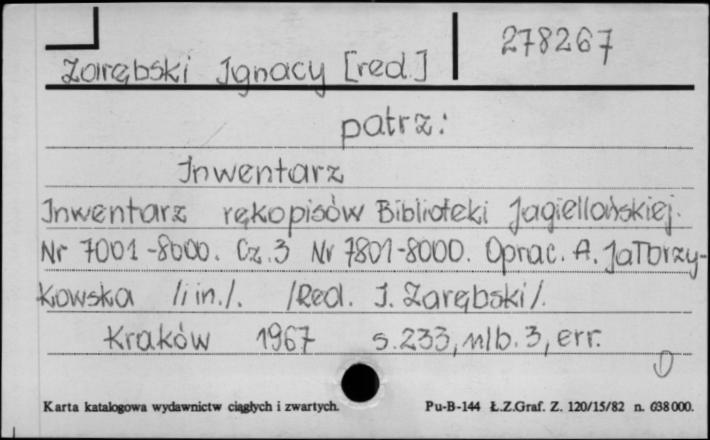 278267
Zarębski Ignacy [red.]
patrz:
Inwentarz
Inwentarz rękopisów Biblioteki Jagiellońskiej.
Nr 7001-8000. Cz. 3 Nr 7801-8000. Oprac. A. Jałbrzy-
kowska /i in./. /Red. I. Zarębski/.
Kraków 1967 s. 233, nlb. 3, err.
Karta katalogowa wydawnictw ciągłych i zwartych.
Pu-B-144 Ł.Z.Graf. Z. 120/15/82 n. 638 000.